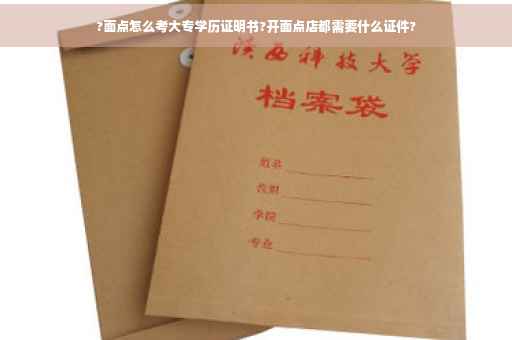 ?面点怎么考大专学历证明书?开面点店都需要什么证件?
陕西科技大学
档案袋
姓名
学院
专业